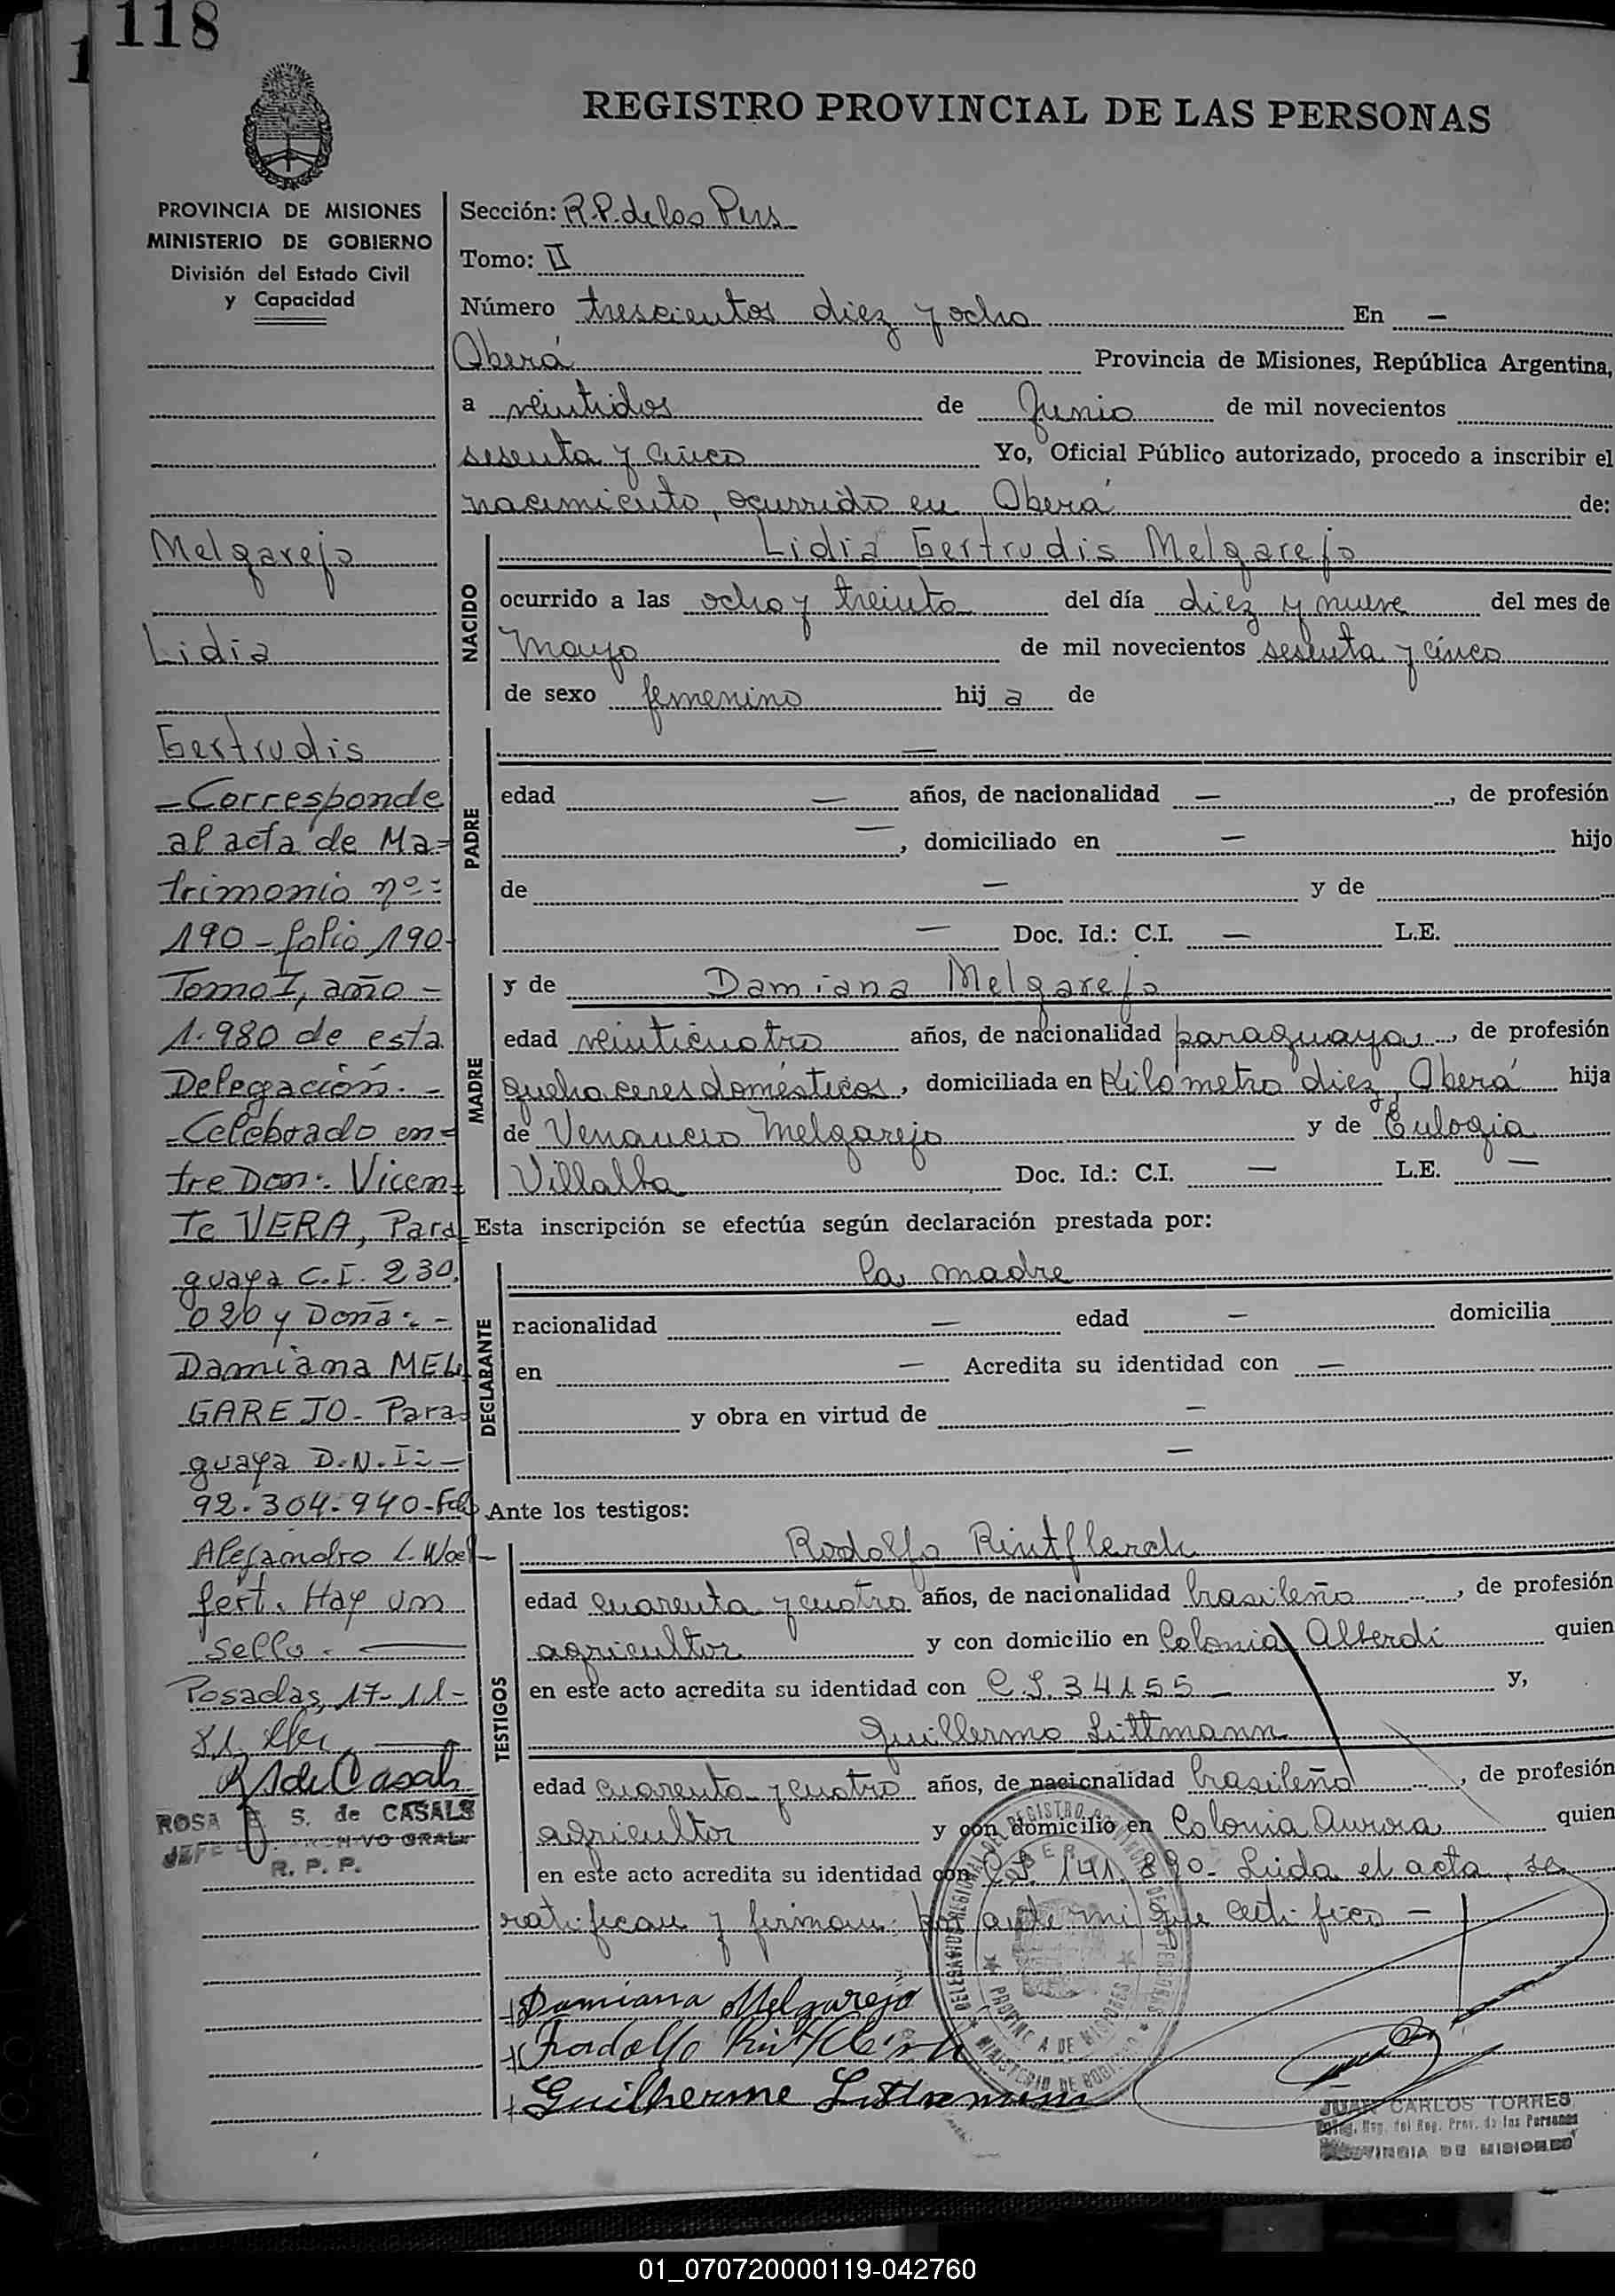 118
1
REGISTRO PROVINCIAL DE LAS PERSONAS
PROVINCIA DE MISIONES
MINISTERIO DE GOBIERNO
División del Estado Civil
y Capacidad
Melgarejo
Lidia
Gertrudis
- Corresponde
al acta de Ma=
trimonio nº:
190 - folio 190-
Tomo I, año -
1.980 de esta
Delegación. -
- Celebrado en=
tre Don: Vicen=
te VERA, Para
guaya C.I. 230.
020 y Doña: -
Damiana MEL
GAREJO - Para=
guaya D.N.I: -
92.304.940 - Fdo
Alejandro L. Woel-
fert. Hay un
sello. -
Posadas, 17-11-
81.
ROSA E. S. de CASALS
JEFE ARCHIVO GRAL.
R. P. P.
Sección: R.P. de las Pers
Tomo: II
Número trescientos diez y ocho En -
Oberá Provincia de Misiones, República Argentina,
a veintidos de Junio de mil novecientos
sesenta y cinco Yo, Oficial Público autorizado, procedo a inscribir el
nacimiento, ocurrido en Oberá de:
NACIDO
Lidia Gertrudis Melgarejo
ocurrido a las ocho y treinta del día diez y nueve del mes de
Mayo de mil novecientos sesenta y cinco
de sexo femenino hij a de
PADRE
-
edad - años, de nacionalidad -, de profesión
-, domiciliado en - hijo
de - y de
- Doc. Id.: C.I. - L.E.
MADRE
y de Damiana Melgarejo
edad veinticuatro años, de nacionalidad paraguaya, de profesión
quehaceres domésticos, domiciliada en Kilómetro diez, Oberá hija
de Venancio Melgarejo y de Eulogia
Villalba Doc. Id.: C.I. - L.E. -
Esta inscripción se efectúa según declaración prestada por:
DECLARANTE
la madre
racionalidad - edad - domicilia
en - Acredita su identidad con -
y obra en virtud de -
-
Ante los testigos:
TESTIGOS
Rodolfo Rintflerch
edad cuarenta y cuatro años, de nacionalidad brasileño, de profesión
agricultor y con domicilio en Colonia Alberdi quien
en este acto acredita su identidad con C.I. 34155 - y,
Guillermo Littmann
edad cuarenta y cuatro años, de nacionalidad brasileño, de profesión
agricultor y con domicilio en Colonia Aurora quien
en este acto acredita su identidad con C.I. 141.890 - Leida el acta, se
ratifican y firman por ante mi que certifico -
Damiana Melgarejo
Guilherme Littmann
PROVINCIA DE MISIONES
MINISTERIO DE GOBIERNO
JUAN CARLOS TORRES
PROVINCIA DE MISIONES
01_070720000119-042760